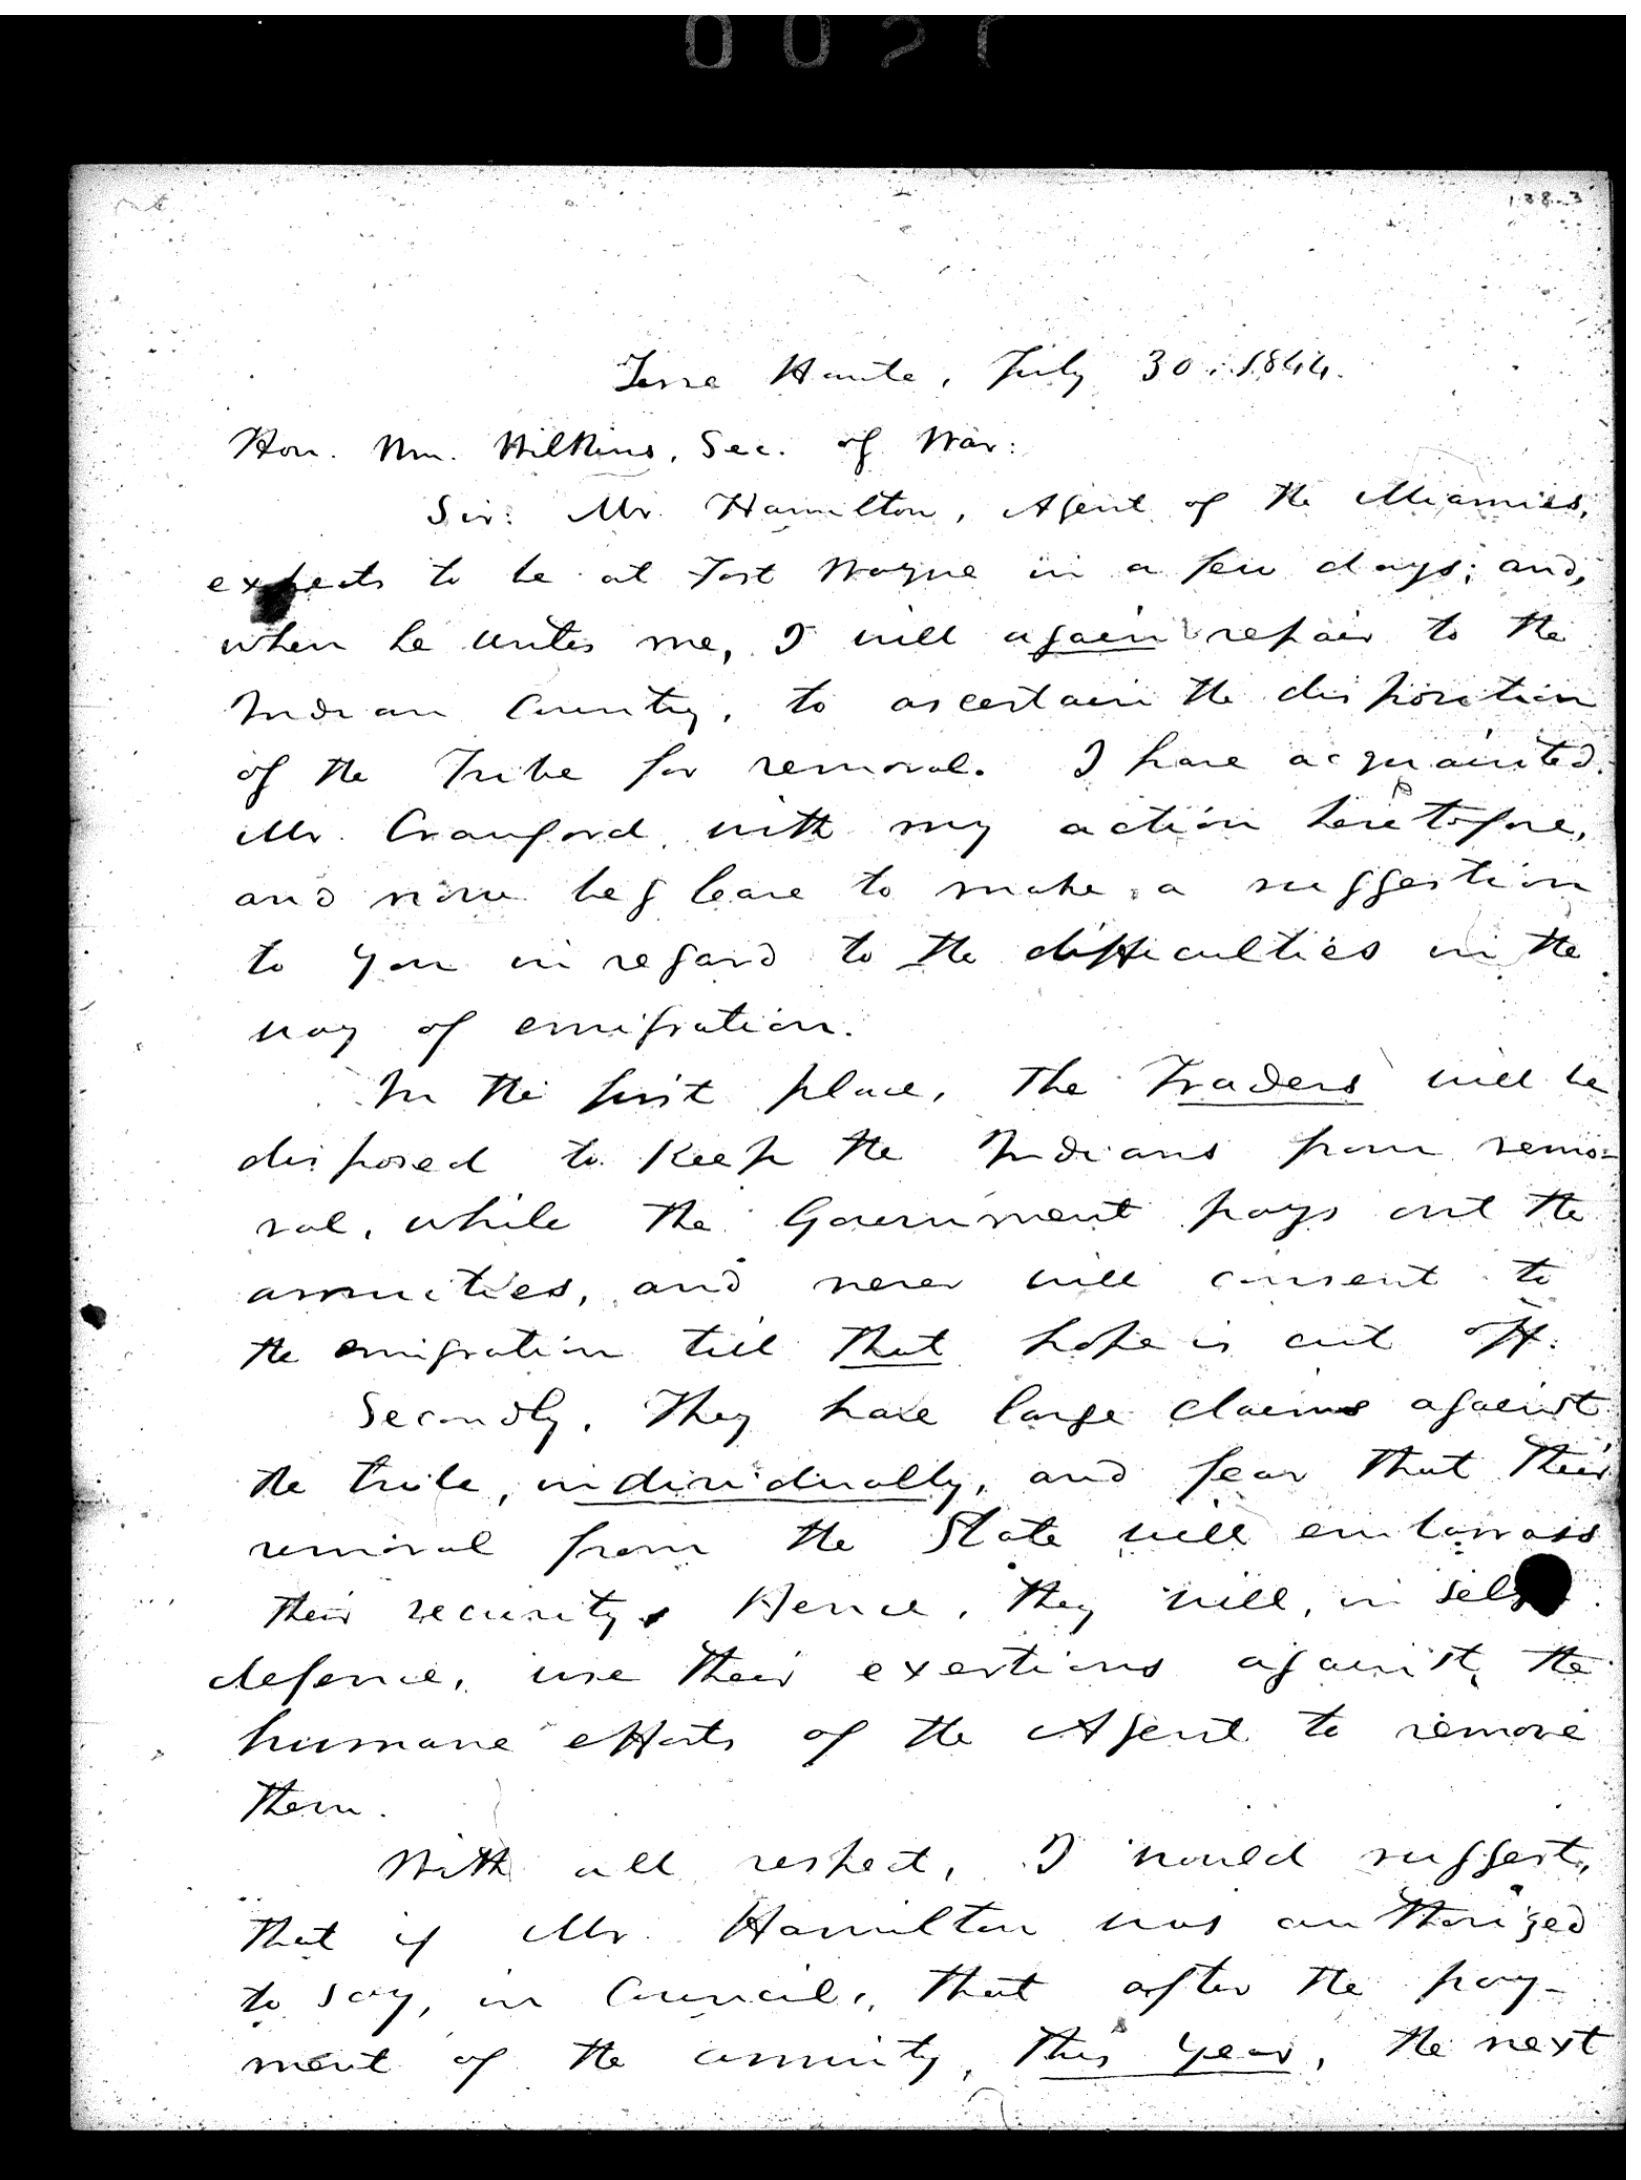 138-3
Terre Haute, July 30, 1844.
Hon. Wm. Wilkins, Sec. of War:
Sir: Mr. Hamilton, Agent of the Miamies,
expects to be at Fort Wayne in a few days; and,
when he writes me, I will again repair to the
Indian Country, to ascertain the disposition
of the Tribe for removal. I have acquainted
Mr. Crawford with my action heretofore,
and now beg leave to make a suggestion
to you in regard to the difficulties in the
way of emigration.
In the first place, The Traders will be
disposed to keep the Indians from remo-
val, while the Government pays out the
annuities, and never will consent to
the emigration till that hope is cut off.
Secondly, They have large claims against
the tribe, individually, and fear that their
removal from the State will embarrass
their security. Hence, they will, in self
defence, use their exertions against the
humane efforts of the Agent to remove
them.
With all respect, I would suggest,
that if Mr. Hamilton was authorized
to say, in Council, that after the pay-
ment of the annuity, this year, the next